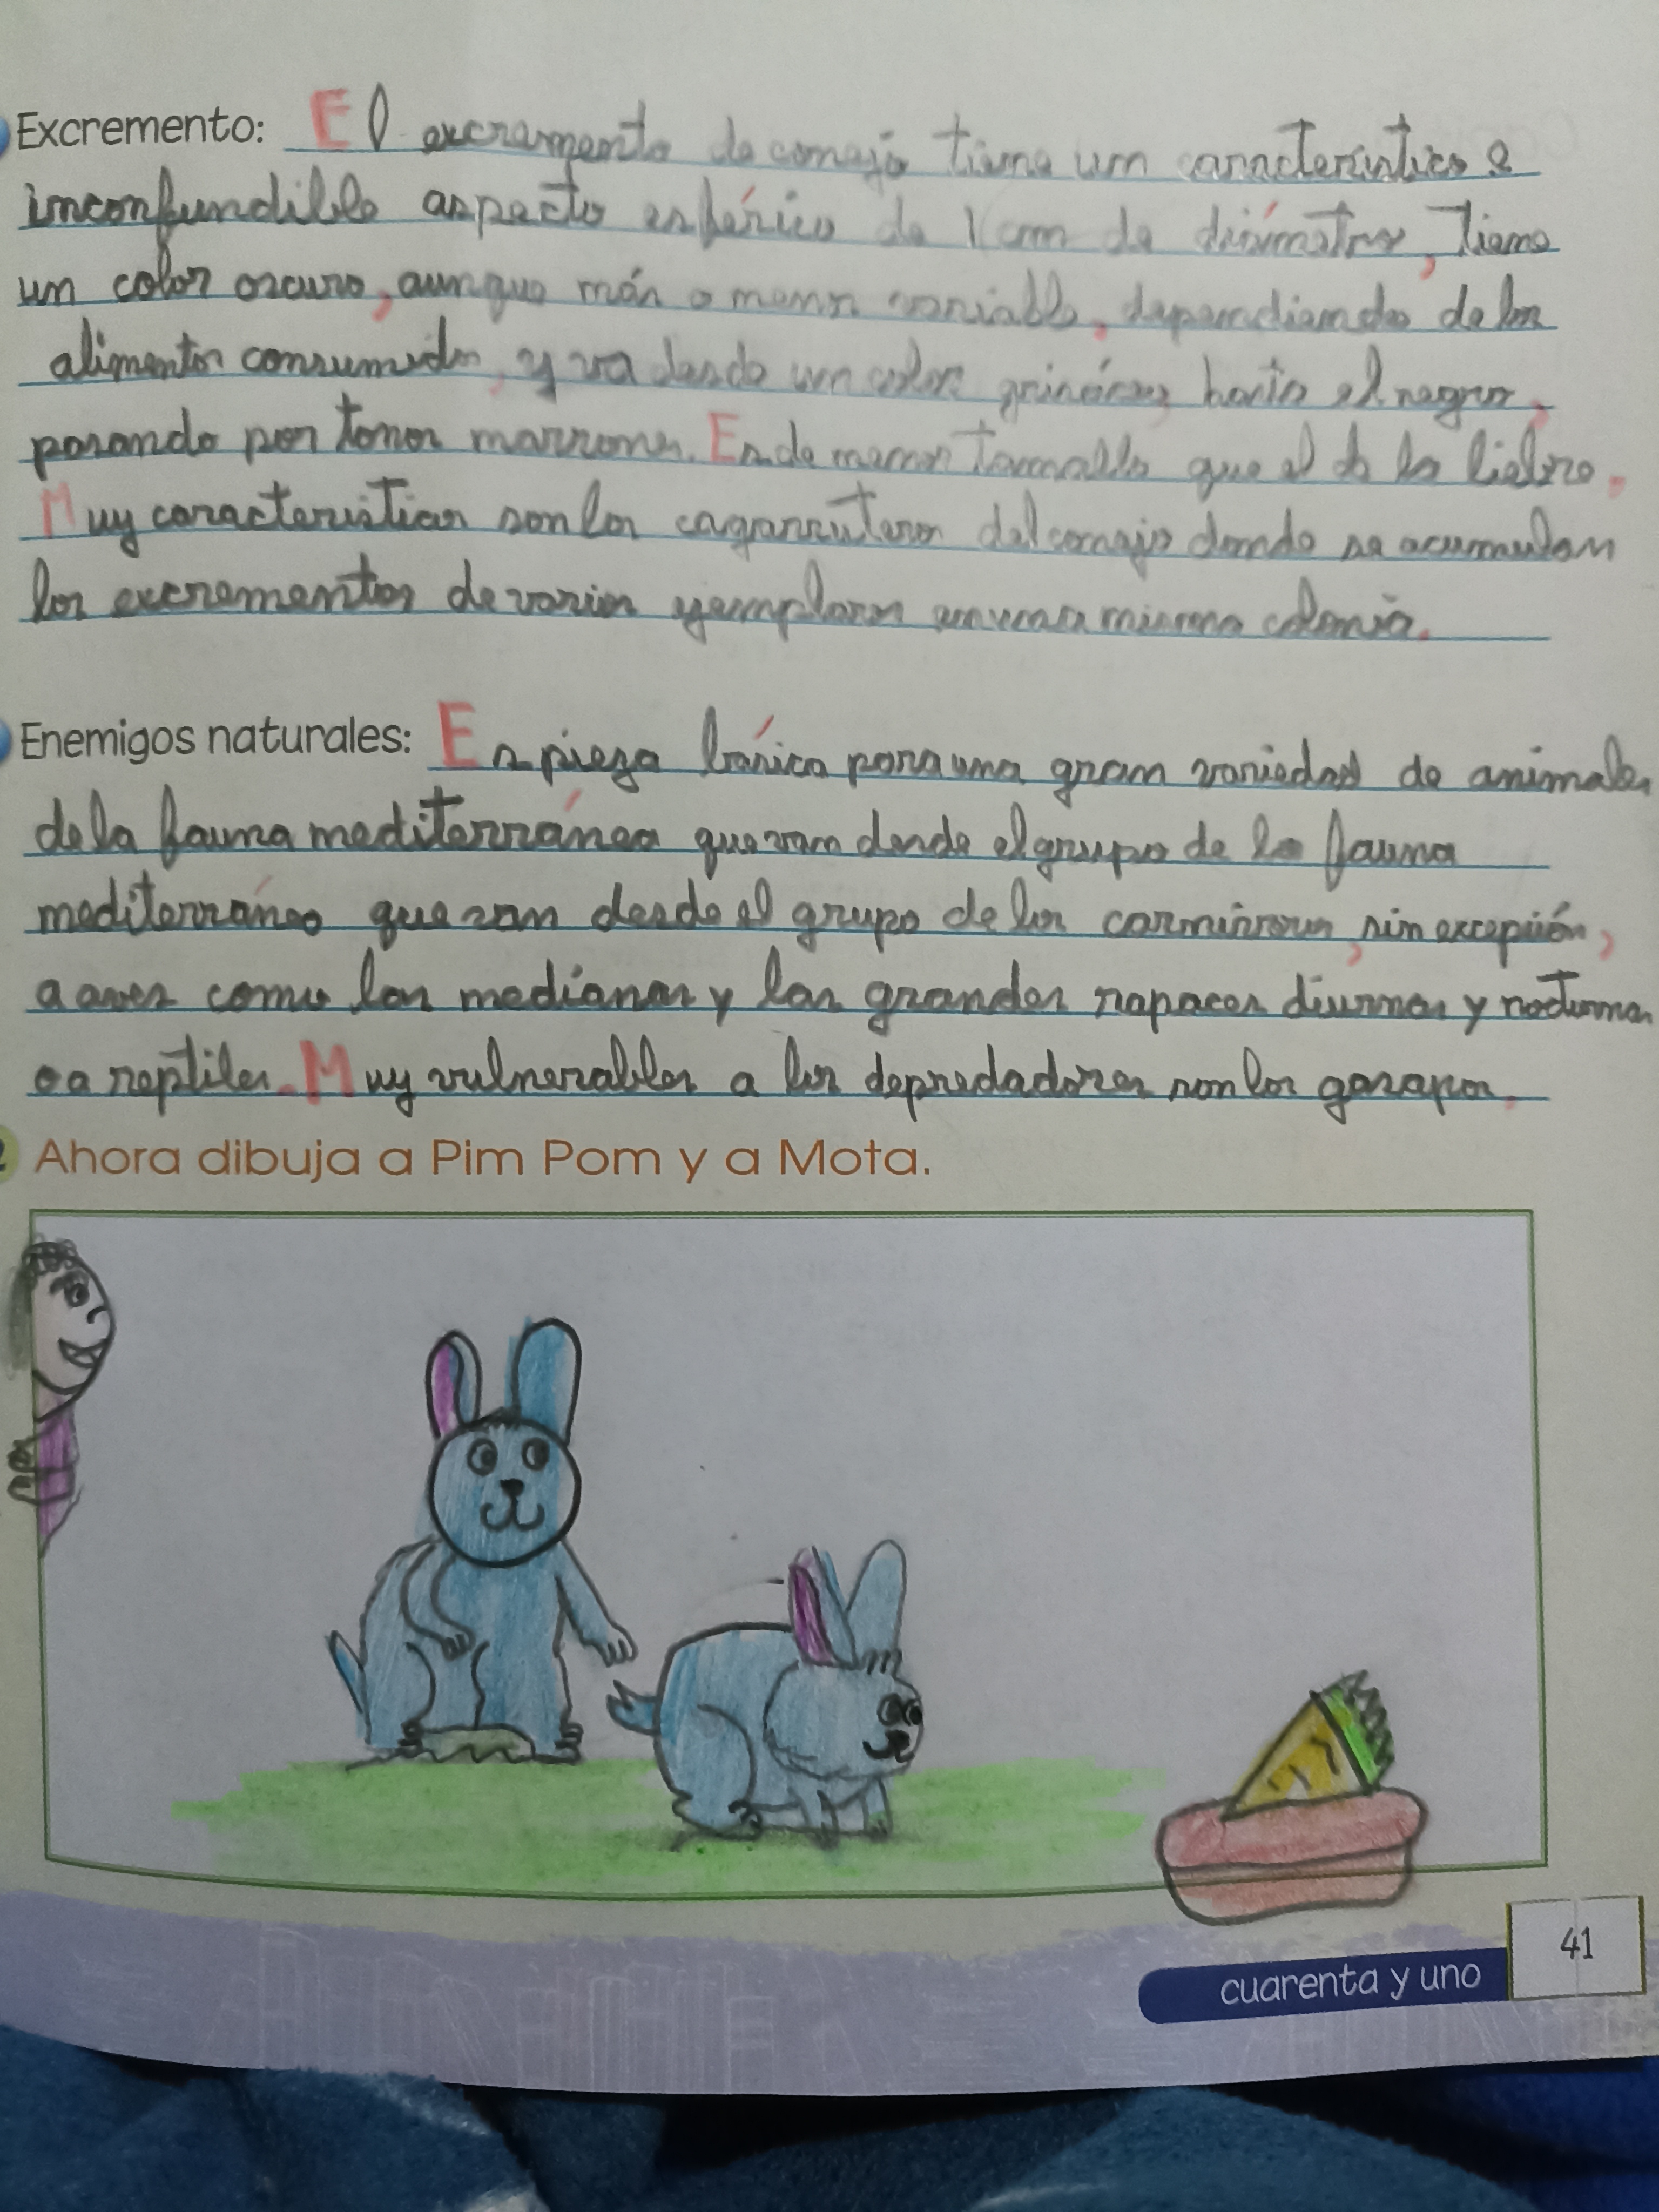 Excremento: El excramento de conejo tiene un característico e
inconfundible aspecto esférico de 1 cm de diámetro, tiene
un color oscuro, aunque más o menos variable, dependiendo de los
alimentos consumidos, y va desde un color grisáceo, hasta el negro,
pasando por tonos marrones. Es de menor tamaño que el de la liebre.
Muy caracteristicos son los cagarruteros del conejo donde se acumulan
los excrementos de varios ejemplares en una misma colonia.
Enemigos naturales: Es pieza básica para una gran variedad de animales
de la fauna mediterránea que van desde el grupo de la fauna
mediterráneo que van desde el grupo de los carnívoros, sin excepción,
a aves como las medianas y las grandes rapaces diurnas y nocturnas
o a reptiles. Muy vulnerables a los depredadores son los gazapos.
Ahora dibuja a Pim Pom y a Mota.
cuarenta y uno
41